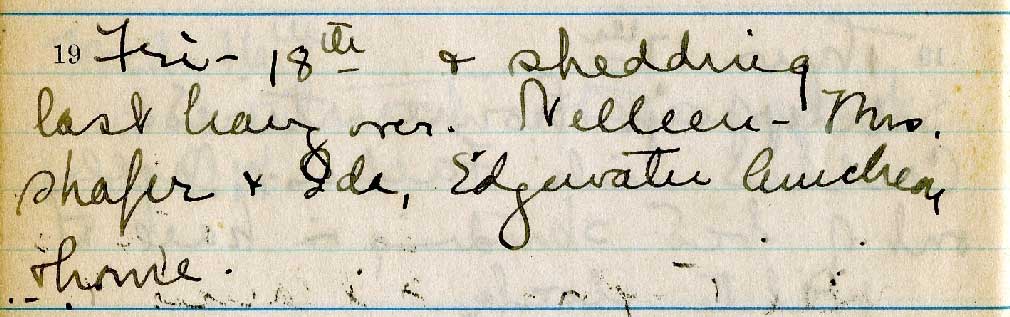 19 Fri - 18th & shedding
last hang over. Nelleen - Mrs.
Shafer & Ida, Edgewater luncheon
& home.